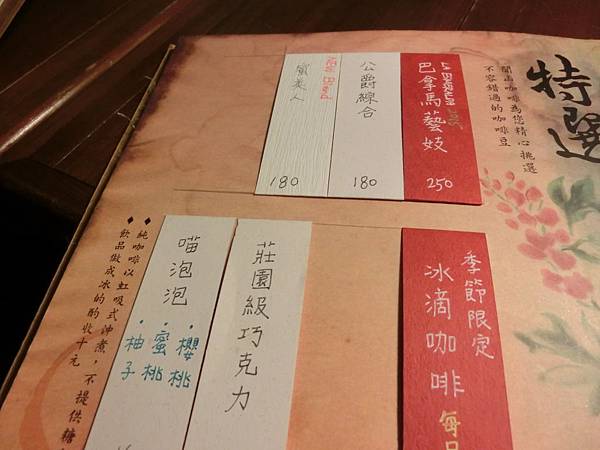 特選
開山咖啡為您精心挑選
不容錯過的咖啡豆
巴拿馬藝妓
250
公爵綜合
180
蜜美人
180
季節限定
冰滴咖啡
每日
莊園級巧克力
喵泡泡
·櫻桃
·蜜桃
·柚子
◆純咖啡以虹吸式沖煮,不提供糖
◆飲品做成冰的酌收十元